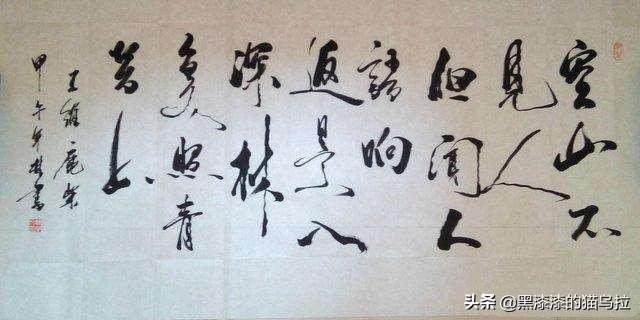 空山不
見人
但聞人
語响
返景入
深林
复照青
苔上
王維鹿柴
甲午年書
头条 @黑漆漆的猫乌拉